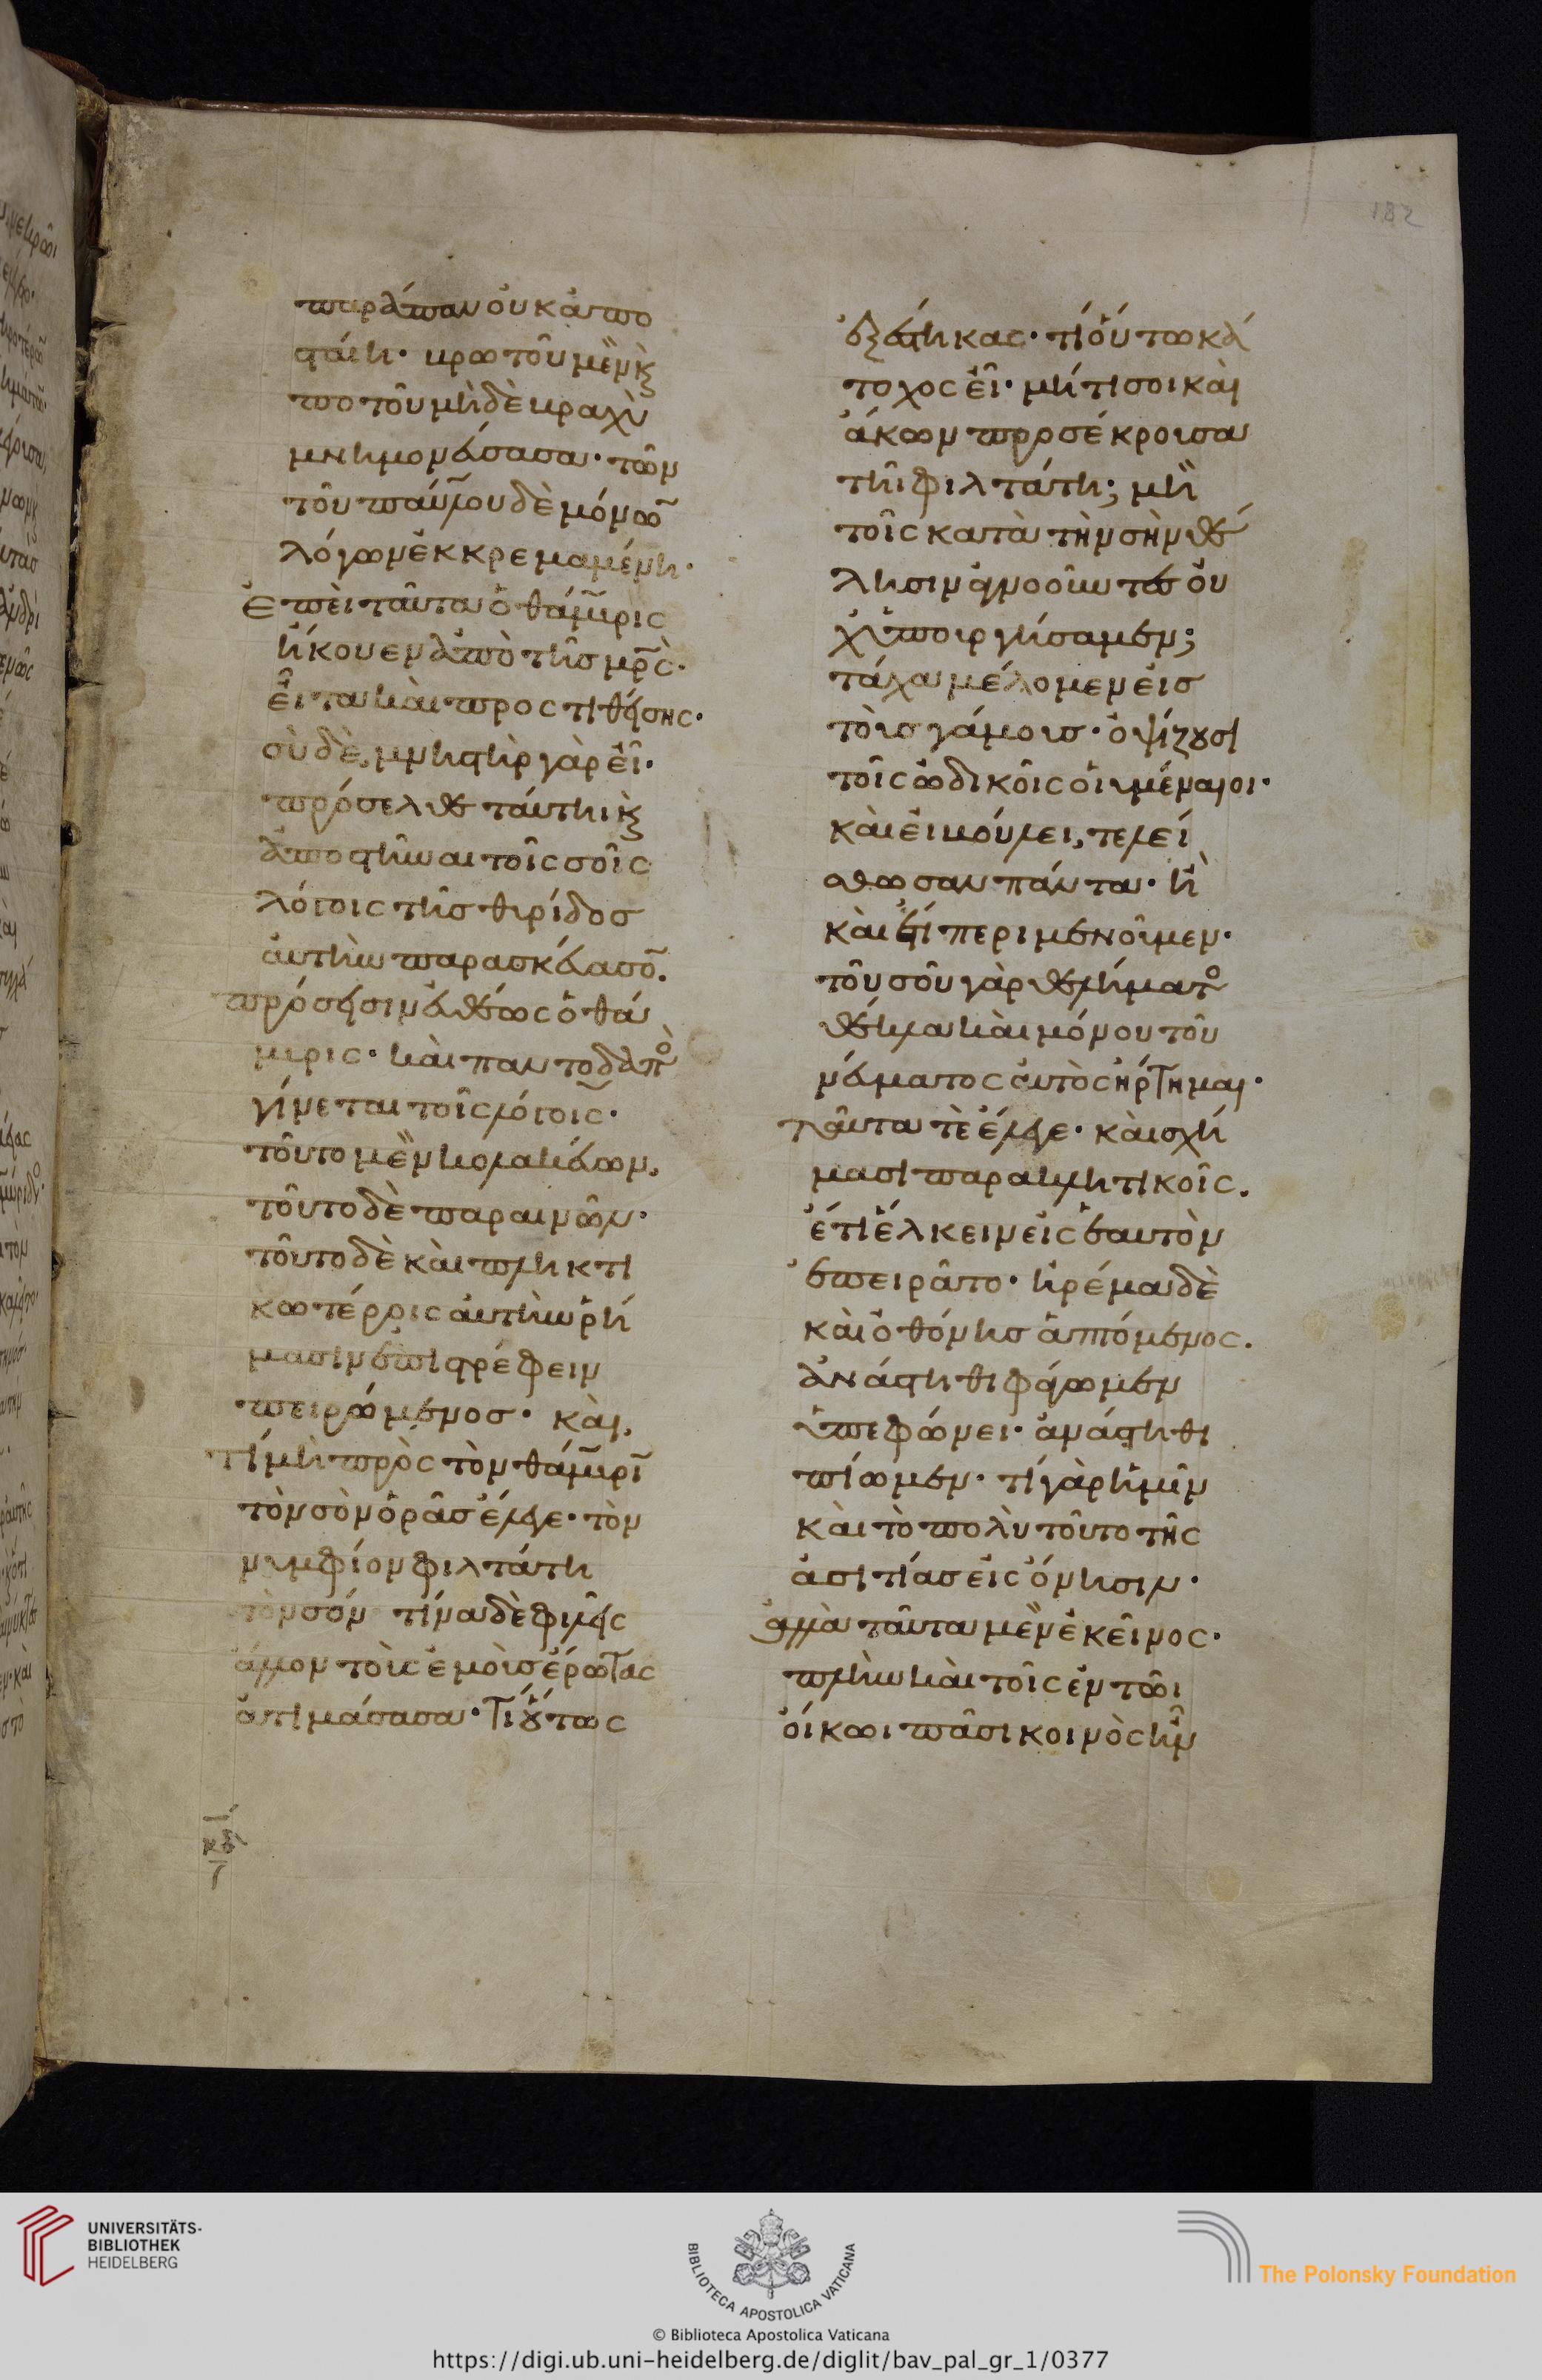 182
παράπαν οὐκ ἀπο
στάσῃ· βρωτοῦ μὲν καὶ
ποτοῦ μηδὲ βραχὺ
μνημονεύσασα· τῶν
τοῦ παύλου δὲ μόνων
λόγων ἐκκρεμαμένη·
Ἐπεὶ ταῦτα ὁ θάμυρις
ἤκουεν ἀπὸ τῆς μρς·
εἶτα καὶ προστιθείσης·
σὺ δὲ, μνηστὴρ γὰρ εἶ·
πρόσελθε ταύτῃ καὶ
ἀποστῆναι τοῖς σοῖς
λόγοις τῆς θυρίδος
αὐτὴν παρασκεύασον.
πρόσεισιν εὐθέως ὁ θά
μυρις· καὶ παντοδαπὸς
γίνεται τοῖς λόγοις·
τοῦτο μὲν κολακεύων,
τοῦτο δὲ παραινῶν·
τοῦτο δὲ καὶ πληκτι
κωτέροις αὐτὴν ῥή
μασιν ἐπιστρέφειν
πειρώμενος· καὶ,
τί μὴ πρὸς τὸν θάμυριν
τὸν σὸν ὁρᾶς ἔλεγε· τὸν
νυμφίον φιλτάτη
τὸν σόν τίνα δὲ φιλεῖς
ἄλλον τοὺς ἐμοὺς ἔρωτας
ἀτιμάσασα· τί οὕτως
ἐξέστηκας· τί οὕτω κά
τοχος εἶ· μή τι σοι καὶ
ἄκων προσέκρουσα
τῇ φιλτάτῃ; μὴ
τοῖς κατὰ τὴν σὴν θέ
λησιν ἀγνοοῦντες οὐ
χ ὑπουργήσαμεν;
τάχα μέλομεν εἰς
τοὺς γάμους· ὀψίζουσι
τοῖς ὠδικοῖς οἱ ὑμέναιοι·
καὶ εἰ βούλει, τελεί
σθωσαν πάντα· ἢ
καὶ ἔτι περιμενοῦμεν·
τοῦ σοῦ γὰρ θελήματος
θέλημα καὶ μόνου τοῦ
νεύματος αὐτὸς ἤρτημαι·
ταῦτά τε ἔλεγε· καὶ σχή
μασι παρακλητικοῖς.
ἔτι ἕλκειν εἰς ἑαυτὸν
ἐπειρᾶτο· ἠρέμα δὲ
καὶ ὀθόνης ἁπτόμενος.
ἀνάστηθι φάγωμεν
ὑπεφώνει· ἀνάστηθι
πίωμεν· τί γὰρ ἡμῖν
καὶ τὸ πολὺ τοῦτο τῆς
ἀσιτίας εἰς ὄνησιν·
ἀλλὰ ταῦτα μὲν ἐκεῖνος·
πλὴν καὶ τοῖς ἐν τῶι
οἴκωι πᾶσι κοινὸς ἦν
κδ
UNIVERSITÄTS-
BIBLIOTHEK
HEIDELBERG
BIBLIOTECA APOSTOLICA VATICANA
The Polonsky Foundation
© Biblioteca Apostolica Vaticana
https://digi.ub.uni-heidelberg.de/diglit/bav_pal_gr_1/0377